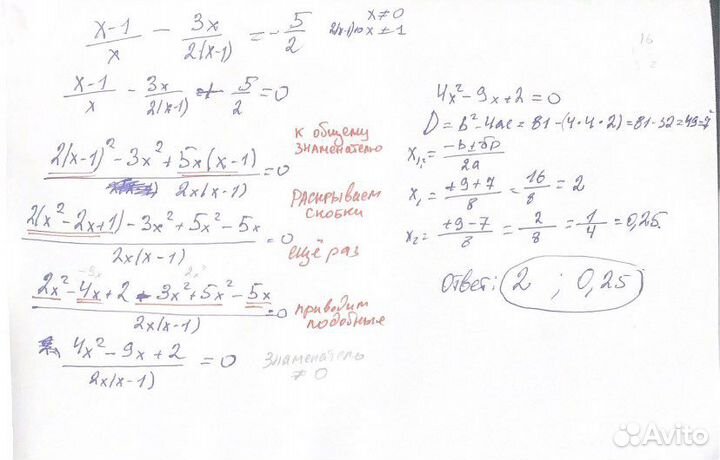 x-1/x - 3x/2(x-1) = -5/2 x≠0
x-1/x - 3x/2(x-1) + 5/2 = 0
2(x-1)² - 3x² + 5x(x-1)/2x(x-1) = 0 к общему знаменателю
2(x²-2x+1) - 3x² + 5x² - 5x/2x(x-1) = 0 Раскрываем скобки
ещё раз
2x² - 4x + 2 - 3x² + 5x² - 5x/2x(x-1) = 0 приводим подобные
4x² - 9x + 2/2x(x-1) = 0 Знаменатель ≠ 0
16
4x² - 9x + 2 = 0
D = b² - 4ac = 81 - (4·4·2) = 81 - 32 = 49 = 7²
x₁,₂ = -b±√D/2a
x₁ = +9+7/8 = 16/8 = 2
x₂ = +9-7/8 = 2/8 = 1/4 = 0,25
Ответ: (2 ; 0,25)
Avito